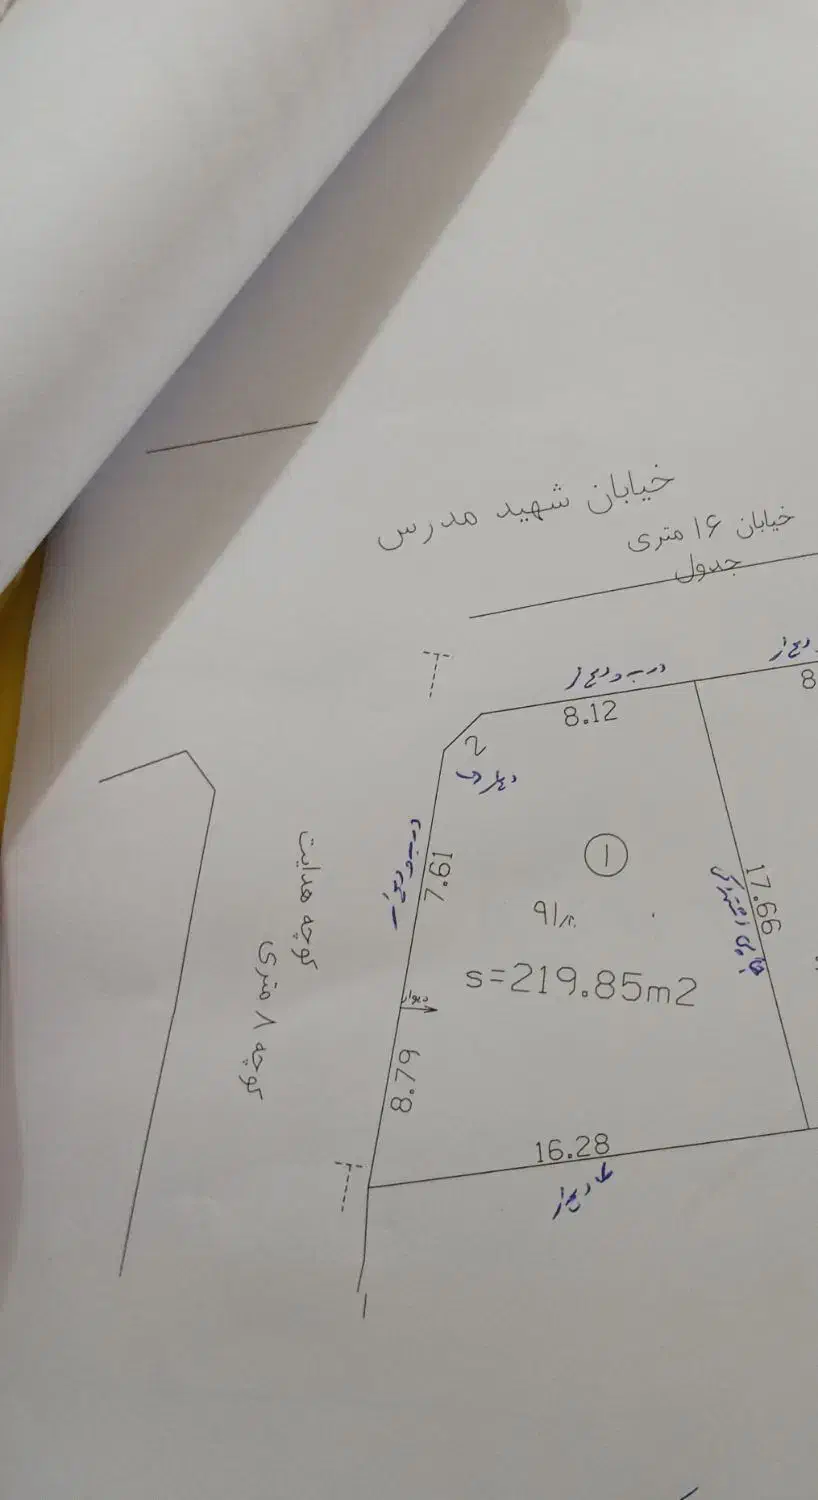 خیابان شهید مدرس
خیابان ۱۶ متری
جدول
درب و دیوار
دیوار
8.12
8
2
دیوار
7.61
۱
17.66
۹۱
s=219.85m2
کوچه هدایت
کوچه ۸ متری
دیوار
8.79
16.28
دیوار